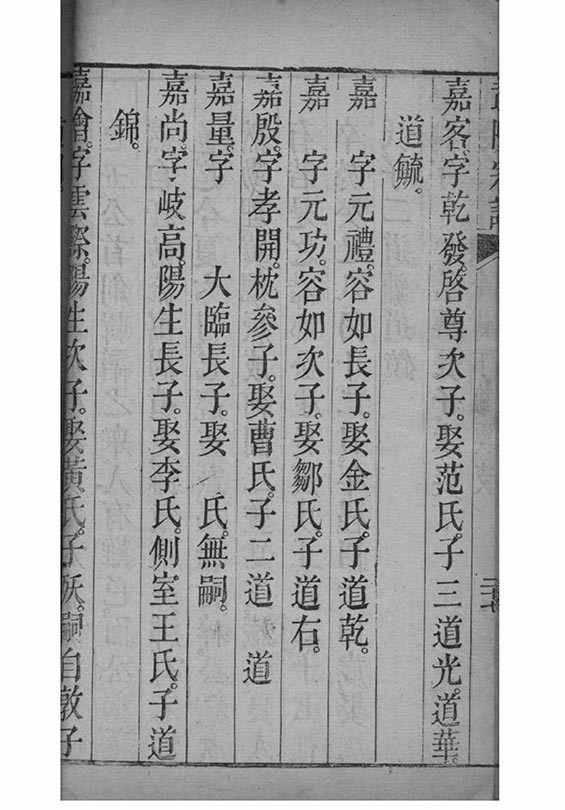 嘉客。字乾發。啓尊次子。娶范氏。子三道光。道華。
道毓。
嘉　字元禮。容如長子。娶金氏。子道乾。
嘉　字元功。容如次子。娶鄒氏。子道右。
嘉殷。字孝開。枕參子。娶曹氏。子二道　道
嘉量。字　大臨長子。娶　氏。無嗣。
嘉尚。字岐高。陽生長子。娶李氏。側室王氏。子道
錦。
嘉會。字雲際。陽生次子。娶黃氏。子殀。嗣自敦子